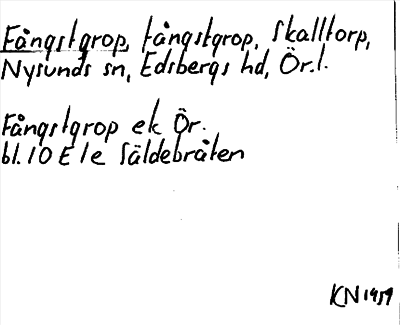 Fångstgrop, fångstgrop, Skalltorp,
Nysunds sn, Edsbergs hd, Ör.l.
Fångstgrop ek Ör.
bl. 10 E 1 e Säldebråten
KN 1959